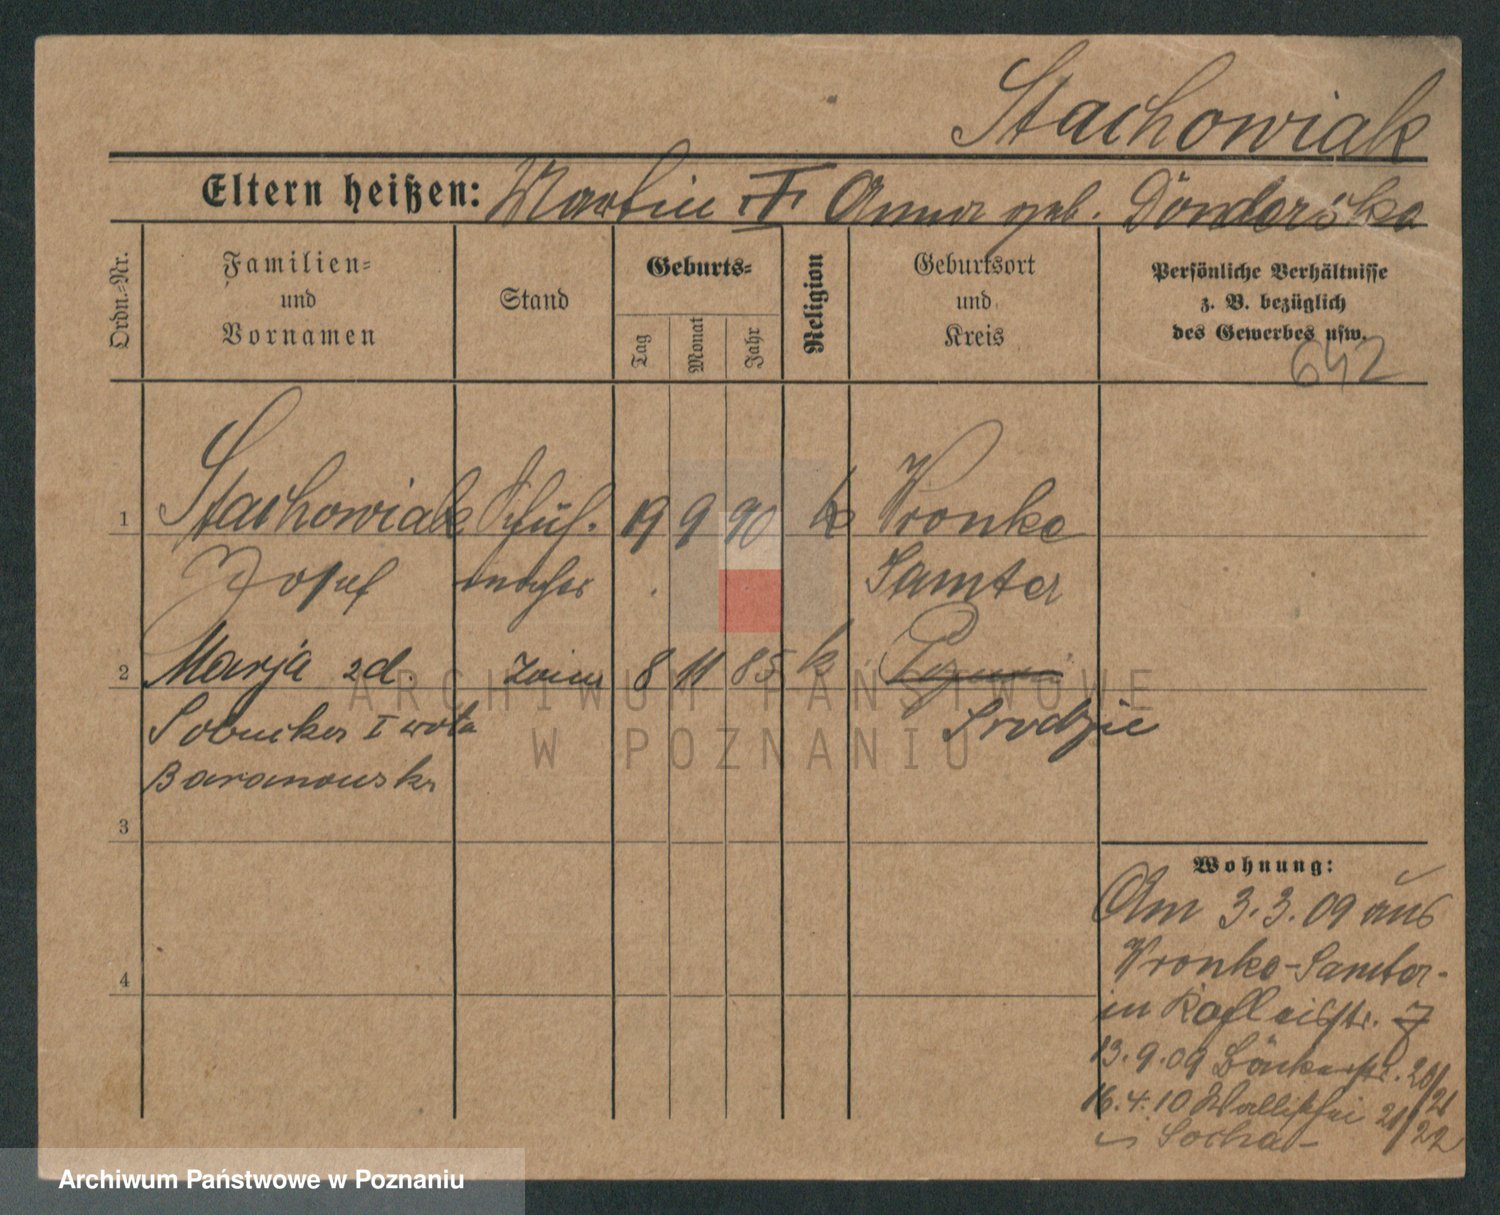 Stachowiak
Eltern heißen: Martin I Anna geb. Dondarska
Ordn.-Nr.
Familien-
und
Vornamen
Stand
Geburts-
Tag
Monat
Jahr
Religion
Geburtsort
und
Kreis
Persönliche Verhältnisse
z. B. bezüglich
des Gewerbes usw.
642
1 Stachowiak Schuh. 19 9 90 k Wronke
Josef macher Samter
2 Marja zd. 8 11 85 k
I wota Srodzie
Baranowska
3
4
Wohnung:
Am 3.3.09 aus
Wronke-Samter-
in 7
13.9.09 Bäckerstr. 20/21
16.4.10 Wallischei 21/22
Socha
ARCHIWUM PAŃSTWOWE
W POZNANIU
Archiwum Państwowe w Poznaniu